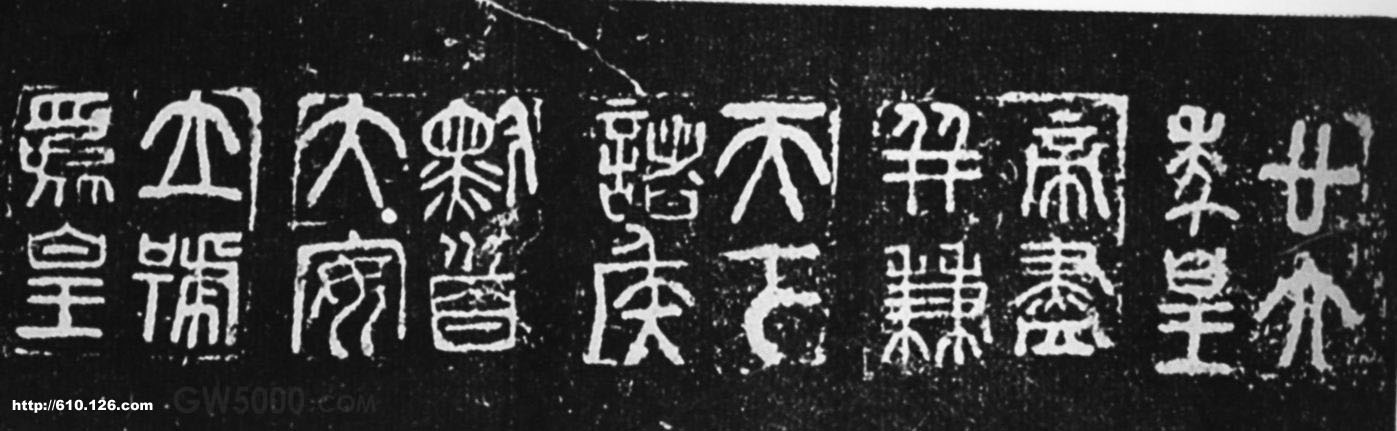 廿六
年皇
帝盡
并兼
天下
諸侯
黔首
大安
立號
為皇
http://610.126.com
GW5000.COM